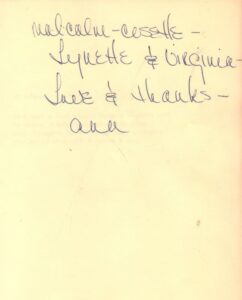 malcolm - cosette -
Lynette & Virginia -
Love & Thanks -
ann